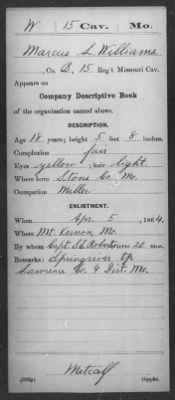 W 15 Cav. Mo.
Marcus L Williams
, Co. B, 15 Reg't Missouri Cav.
Appears on
Company Descriptive Book
of the organization named above.
DESCRIPTION.
Age 18 years; height 5 feet 8 inches.
Complexion fair
Eyes yellow; hair light.
Where born Stone Co. Mo.
Occupation Miller
ENLISTMENT.
When Apr. 5, 1864.
Where Mt. Vernon, Mo.
By whom Capt S E Roberts; term 20 mos.
Remarks: Springriver Tp
Lawrence Co. 4 Dist. Mo.
Metcalf
Copyist.